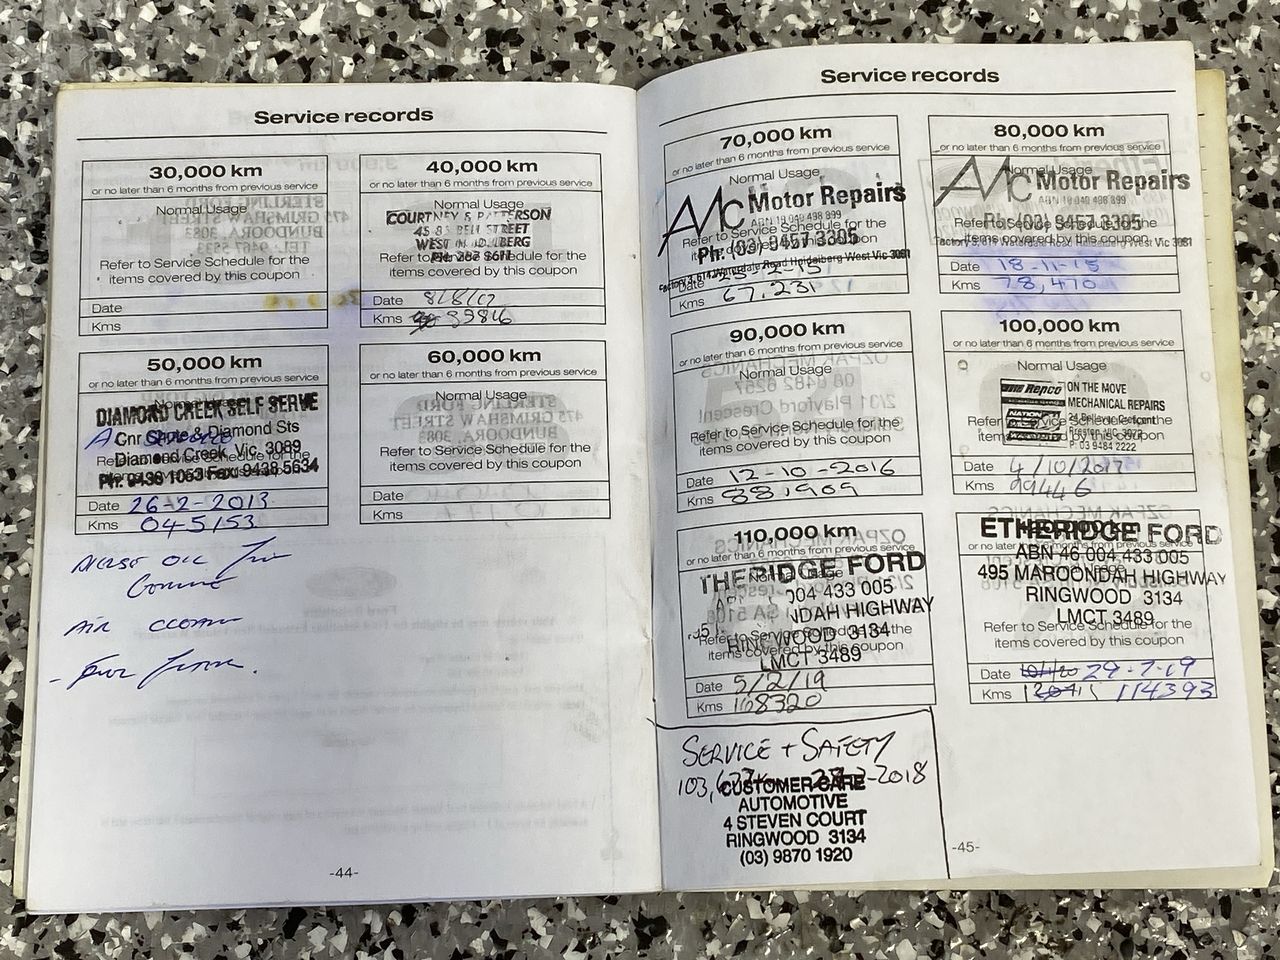 Service records
30,000 km
or no later than 6 months from previous service
Normal Usage
Refer to Service Schedule for the
items covered by this coupon
Date
Kms
40,000 km
or no later than 6 months from previous service
Normal Usage
COURTNEY & PATTERSON
BELL STREET
Refer to Service Schedule for the
items covered by this coupon
Date 8/8/12
Kms 39816
50,000 km
or no later than 6 months from previous service
Normal Usage
DIAMOND CREEK SELF SERVE
Cnr Chute & Diamond Sts
Diamond Creek Vic 3089
Ph: 9438 1053 Fax: 9438 5634
Date 26-2-2013
Kms 045153
AIR
60,000 km
or no later than 6 months from previous service
Normal Usage
Refer to Service Schedule for the
items covered by this coupon
Date
Kms
-44-
Service records
70,000 km
or no later than 6 months from previous service
Normal Usage
AMC Motor Repairs
ABN 18 040 498 899
Refer to Service Schedule for the
Ph: (03) 9457 3305
items covered by this coupon
Waterdale Road Heidelberg West Vic 3081
Date
Kms 67,231
80,000 km
or no later than 6 months from previous service
Normal Usage
AMC Motor Repairs
ABN 18 040 498 899
Refer to Service Schedule for the
Ph: (03) 9457 3305
items covered by this coupon
Waterdale Road Heidelberg West Vic 3081
Date 18-11-15
Kms 78,470
90,000 km
or no later than 6 months from previous service
Normal Usage
Refer to Service Schedule for the
items covered by this coupon
Date 12-10-2016
Kms 88,909
100,000 km
or no later than 6 months from previous service
Normal Usage
Repco
ON THE MOVE
MECHANICAL REPAIRS
Preston VIC
P: 03 9484 2222
Date 4/10/2017
Kms 99446
110,000 km
or no later than 6 months from previous service
Normal Usage
THERIDGE FORD
004 433 005
NDAH HIGHWAY
Refer to Service Schedule for the
RINGWOOD 3134
items covered by this coupon
LMCT 3489
Date 5/2/19
Kms 108320
or no later than 6 months from previous service
ETHERIDGE FORD
ABN 46 004 433 005
495 MAROONDAH HIGHWAY
RINGWOOD 3134
LMCT 3489
Refer to Service Schedule for the
items covered by this coupon
Date 29-7-19
Kms 114393
SERVICE + SAFETY
2018
CUSTOMER CARE
AUTOMOTIVE
4 STEVEN COURT
RINGWOOD 3134
(03) 9870 1920
-45-